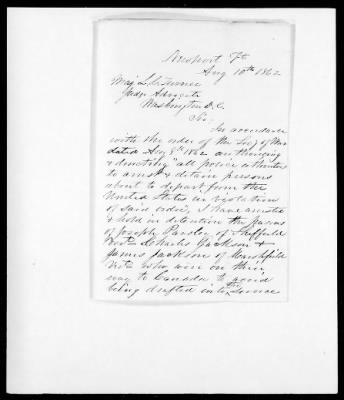 Newport Vt
Aug 10th 1862
Maj L. C. Turner
Judge Advocate
Washington D.C.
Sir.
In accordance
with the order of the Secy of War
dated Aug 8th 1862 authorizing
& directing "all police authorities
to arrest & detain persons
about to depart from the
United States in violation
of said order", I have arrested
& hold in detention the persons
of Joseph Parsley of Sheffield
Vert Charles Jackson &
James Jackson of Marshfield
Vert who were on their
way to Canada to avoid
being drafted into the service